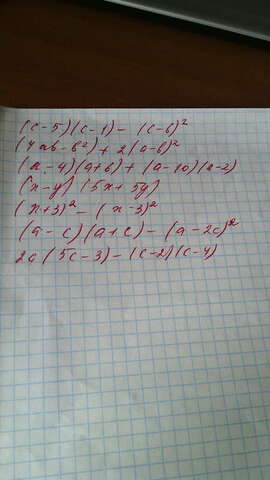 (c-5)(c-1)-(c-6)²
(4ab-b²)+2(a-b)²
(a-4)(a+6)+(a-10)(a-2)
(x-y)(5x+5y)
(x+3)²-(x-3)²
(a-c)(a+c)-(a-2c)²
2a(5c-3)-(c-2)(c-4)